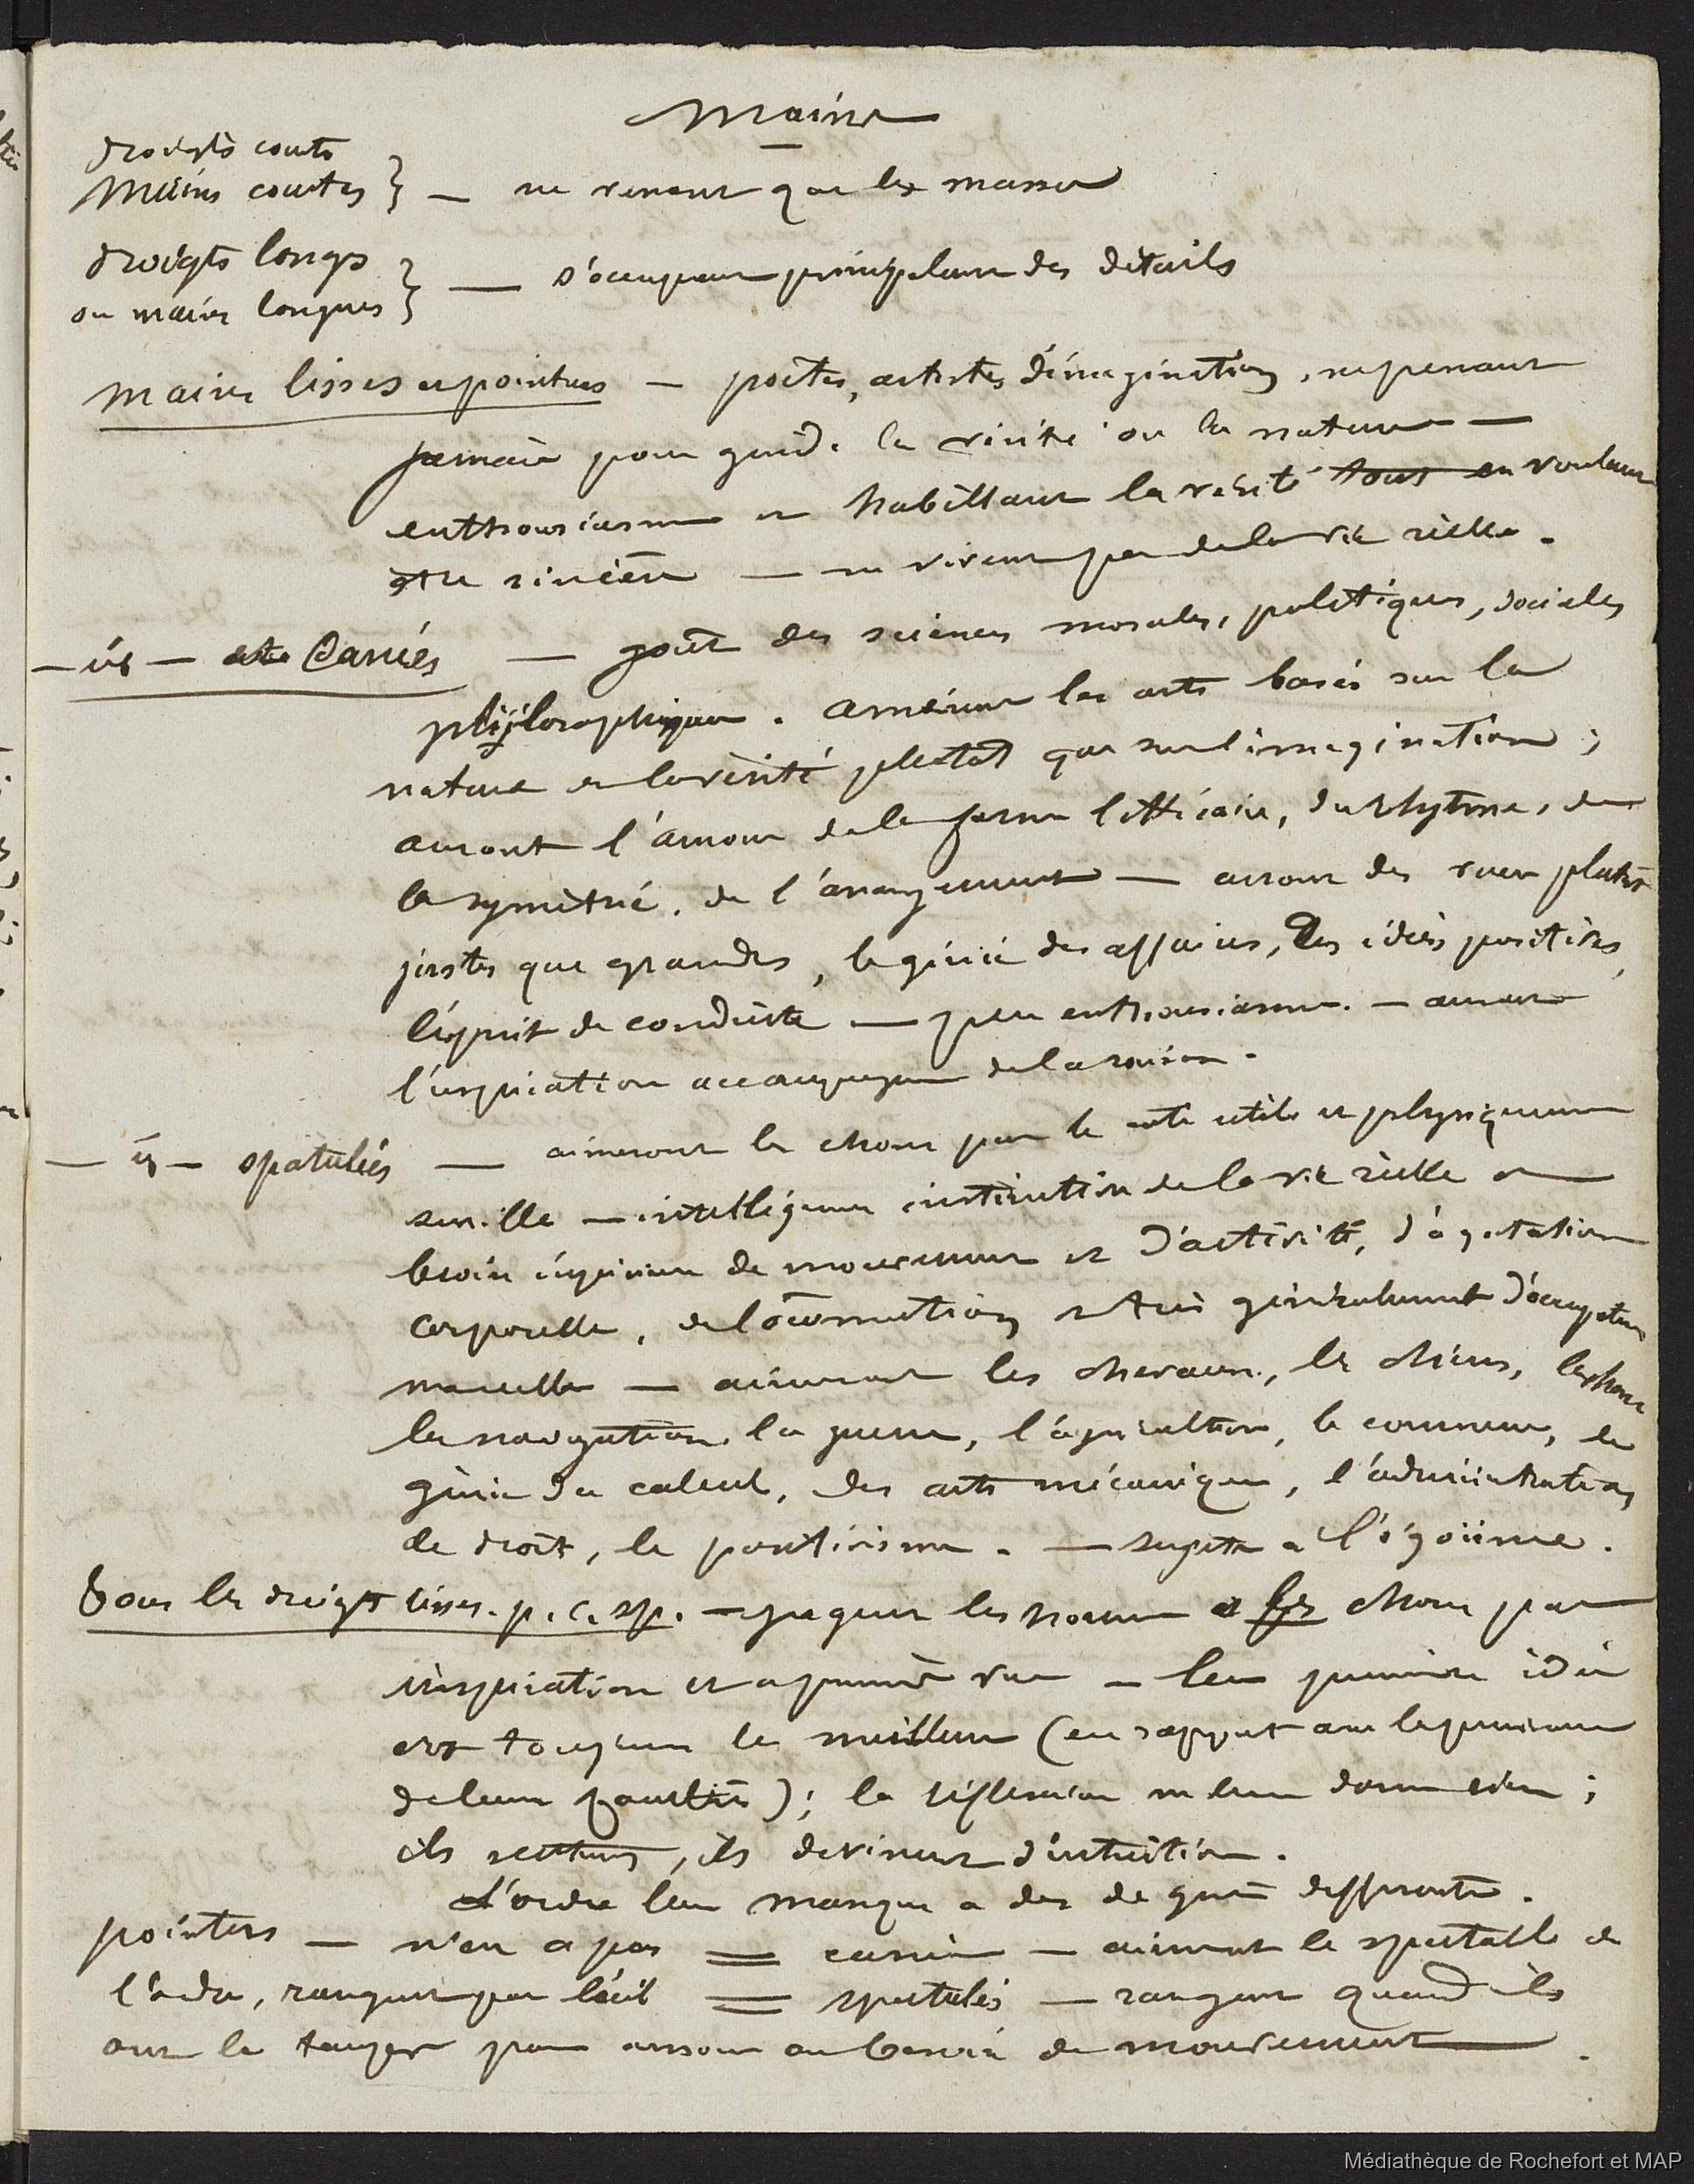 Mains
doigts courts
Mains courtes } — ne voient que les masses
doigts longs
ou mains longues } — s'occupent principalem des détails
Mains lisses et pointues — poëtes, artistes d'imagination, ne prenant
jamais pour guide la vérité ou la nature —
enthousiasme et habillant la vérité tout en voulant
être sincère — ne vivent pas de la vie réelle.
— id — Carrés — goût des sciences morales, politiques, sociales
philosophiques. aimeront les arts basés sur la
nature et la vérité plutôt que sur l'imagination ;
auront l'amour de la forme littéraire, du rhytme, de
la symétrie, de l'arangement — auront des vues plutôt
justes que grandes, le génie des affaires, des idées positives,
l'esprit de conduite — peu enthousiasme. — auront
l'inspiration accompagnée de la raison.
— id — spatulés — aimeront les choses par le coté utile et physiquement
sensible — intelligence instinctive de la vie réelle et
besoin impérieux de mouvement et d'activité, d'agitation
corporelle, de locomotion et très généralement d'occupations
manuelles — aimeront les chevaux, les chiens, la chasse
la navigation, la guerre, l'agriculture, le commerce, le
génie du calcul, des arts mécaniques, l'administration,
le droit, le positivisme. — sujets à l'égoïsme.
Tous les doigts lisses. p. c. sp. — jugent les hommes et les choses par
inspiration et a première vue — leur première idée
est toujours la meilleure (en rapport avec la puissance
de leurs facultés) ; la réflexion ne leur donne rien ;
ils sentent, ils devinent d'intuition.
L'ordre leur manque a des degrés différents.
pointus — n'en a pas = carrés — aiment le spectacle de
l'ordre, rangent par l'œil = spatulés — rangent quand ils
ont le temps pour assouvir au besoin de mouvement.
Médiathèque de Rochefort et MAP